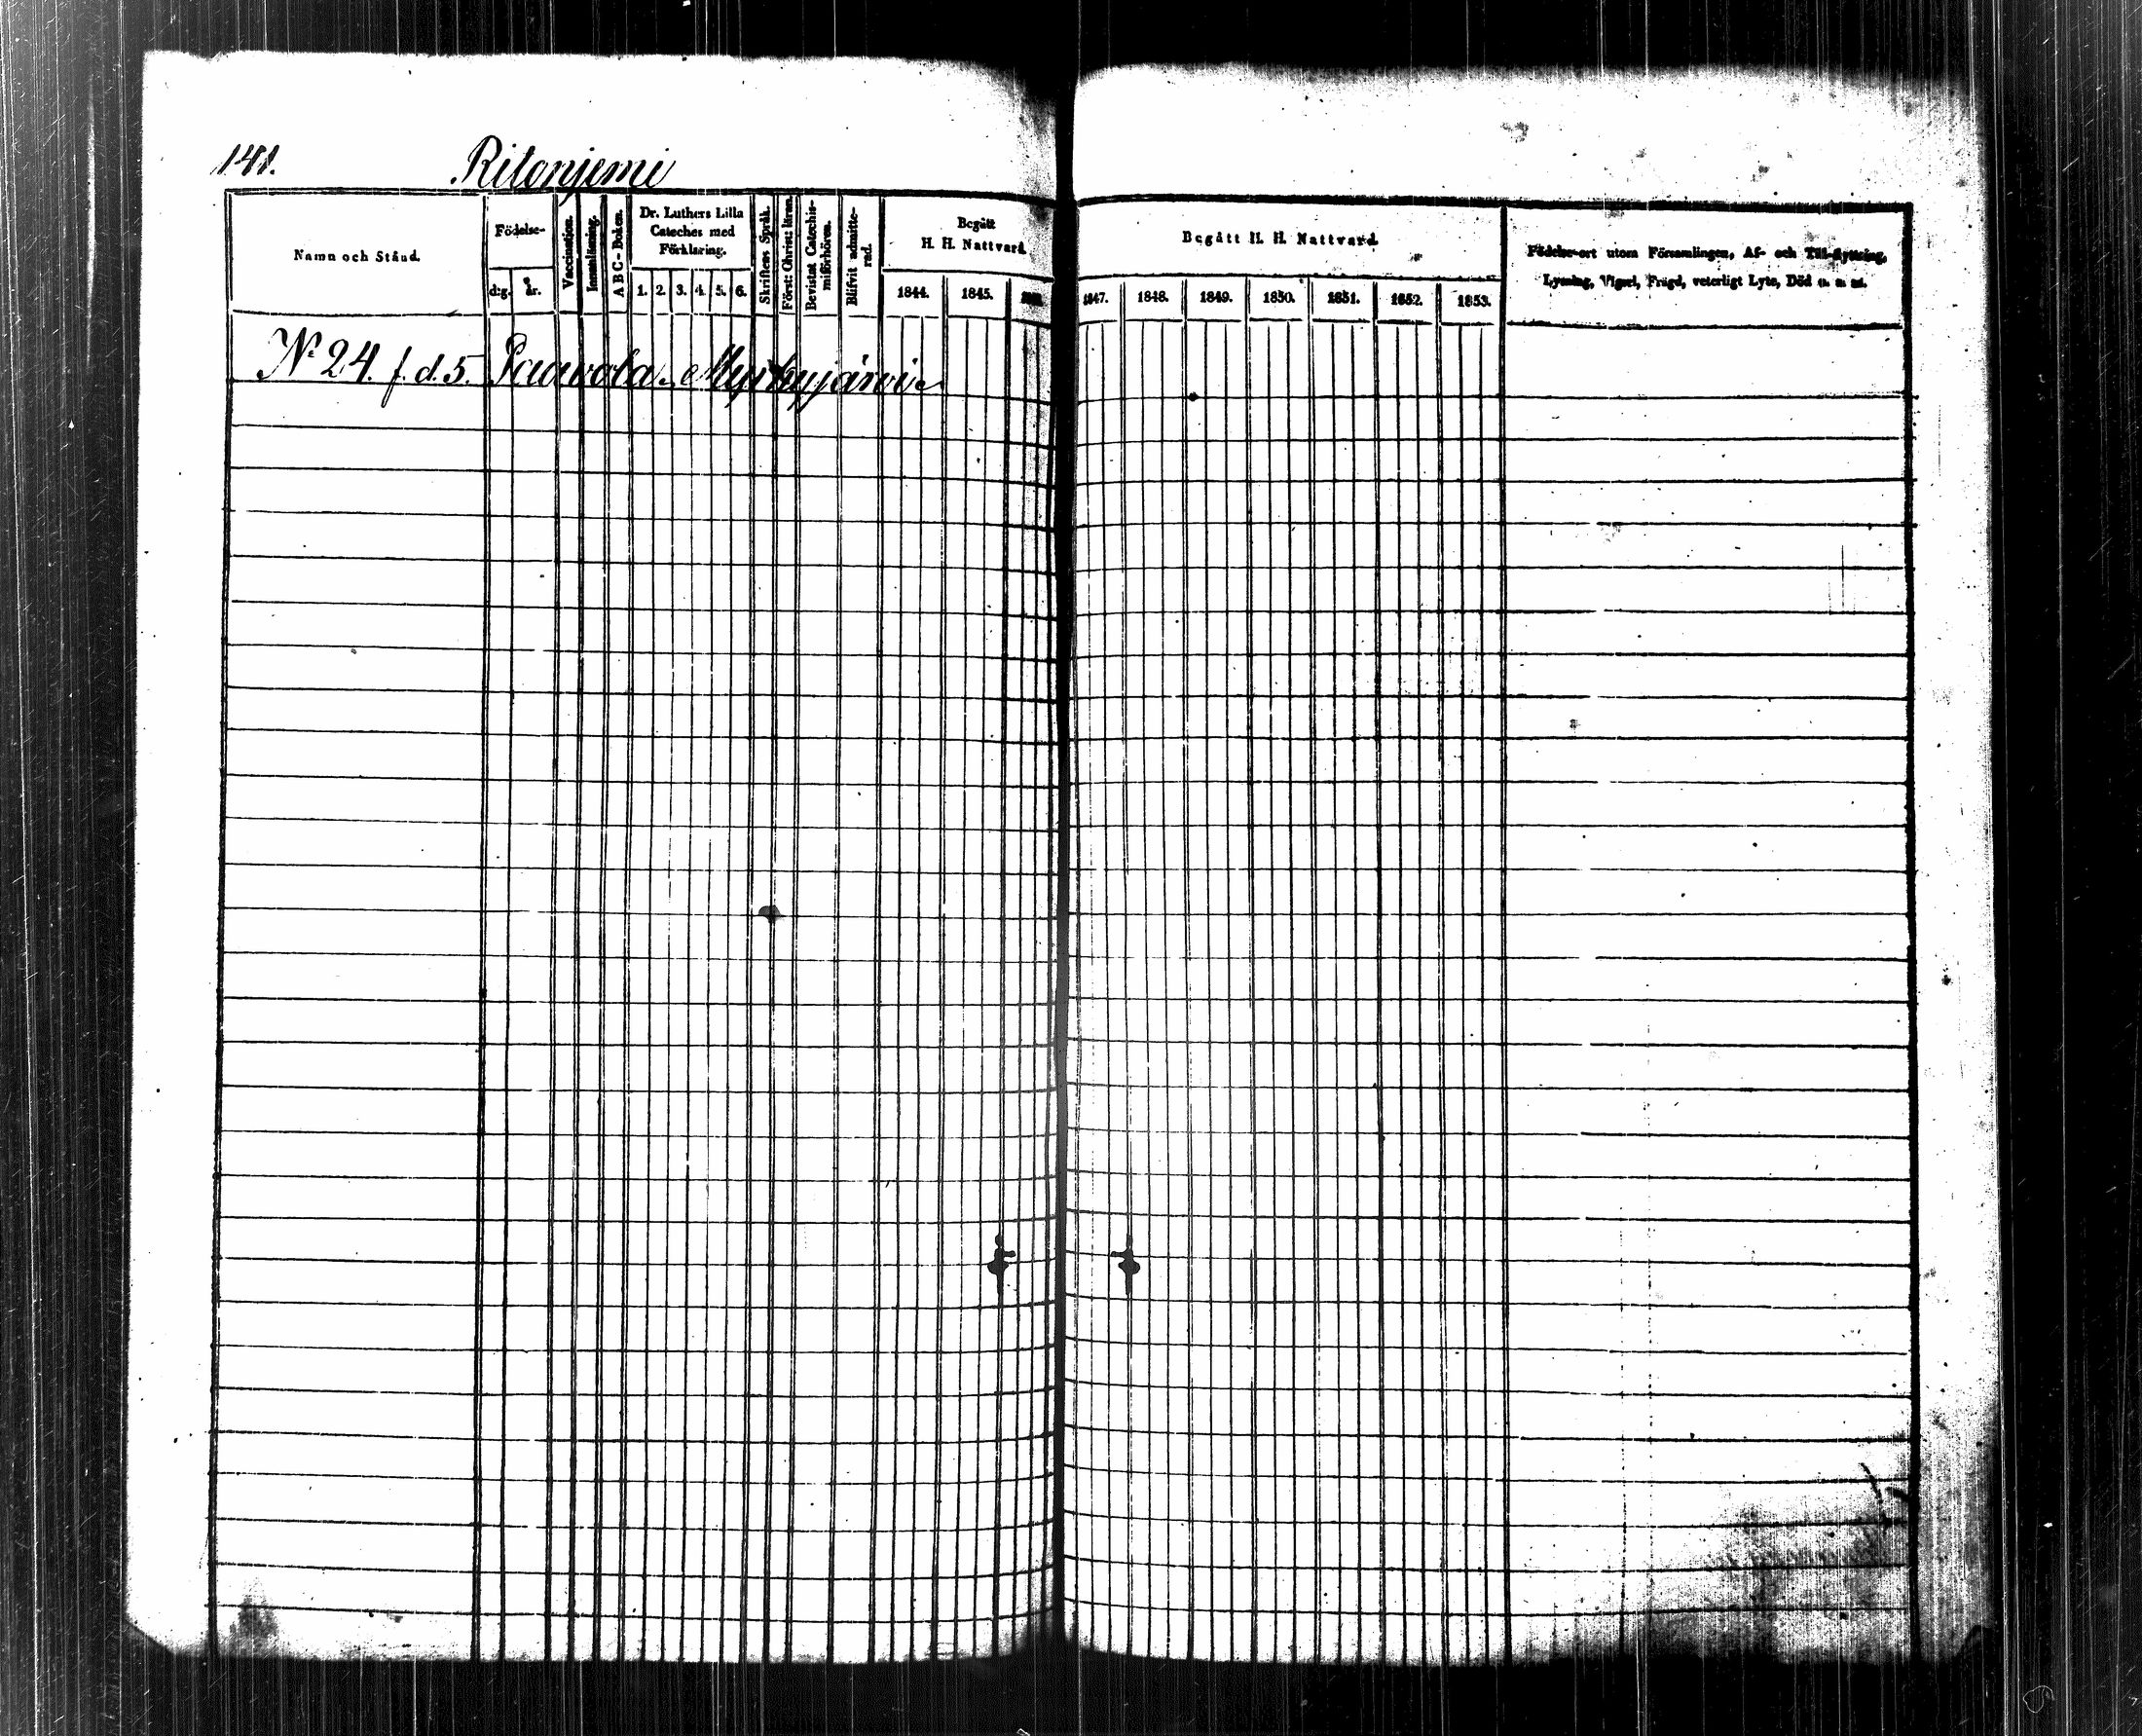 141. Ritanjemi
Namn och Stånd.
Födelse-
d:g. år.
Vaccination.
Innanläsning.
A B C - Boken.
Dr. Luthers Lilla
Cateches med
Förklaring.
1. 2. 3. 4. 5. 6.
Skriftens Språk.
Först: Christ: läran.
Bevistat Catechis-
miförhören.
Blifvit admitte-
rad.
Begått
H. H. Nattvard
1844. 1845.
Begått H. H. Nattvard
1847. 1848. 1849. 1850. 1851. 1852. 1853.
Födelse-ort utom Församlingen, Af- och Till-flyttning,
Lysning, Vigsel, Frägd, veterligt Lyte, Död m. m.
No 24. f. d. 5. Paawola. Myrkyjärvi